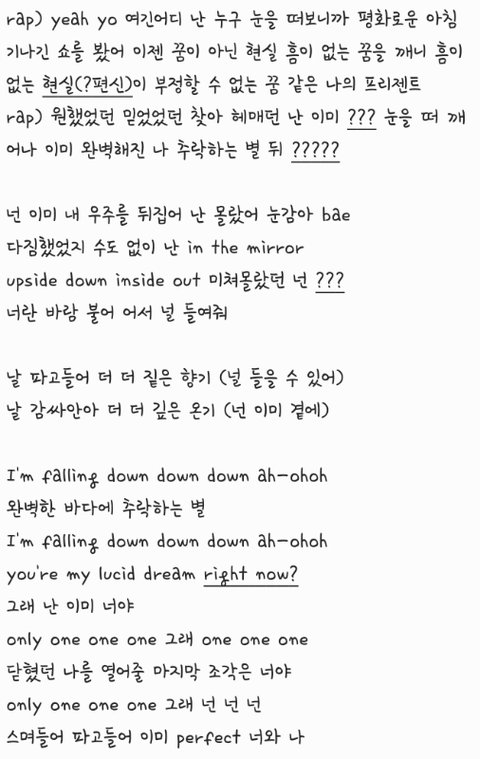 rap) yeah yo 여긴어디 난 누구 눈을 떠보니까 평화로운 아침
기나긴 쇼를 봤어 이젠 꿈이 아닌 현실 흠이 없는 꿈을 깨니 흠이
없는 현실(?편신)이 부정할 수 없는 꿈 같은 나의 프리젠트
rap) 원했었던 믿었었던 찾아 헤매던 난 이미 ??? 눈을 떠 깨
어나 이미 완벽해진 나 추락하는 별 뒤 ?????
넌 이미 내 우주를 뒤집어 난 몰랐어 눈감아 bae
다짐했었지 수도 없이 난 in the mirror
upside down inside out 미쳐몰랐던 넌 ???
너란 바람 불어 어서 널 들여줘
날 파고들어 더 더 짙은 향기 (널 들을 수 있어)
날 감싸안아 더 더 깊은 온기 (넌 이미 곁에)
I'm falling down down down ah-ohoh
완벽한 바다에 추락하는 별
I'm falling down down down ah-ohoh
you're my lucid dream right now?
그래 난 이미 너야
only one one one 그래 one one one
닫혔던 나를 열어줄 마지막 조각은 너야
only one one one 그래 넌 넌 넌
스며들어 파고들어 이미 perfect 너와 나